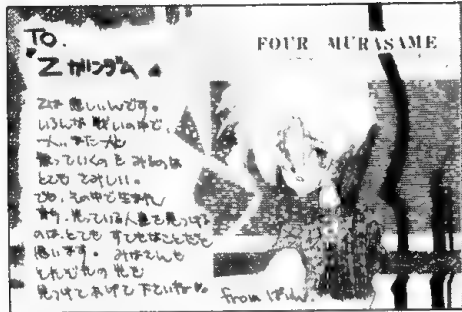 TO.
"Zガンダム
FOUR MURASAME
Zは悲しいんです。
いろんな戦いの中で、
一人、また一人と
散っていくのをみるのは
とても
でも、その中で生まれ
育ち、光っている人達を見つける
のは、とてもすてきなことだと
思います。みなさんも
それぞれの光を
見つけてあげて下さいな♥。
from ぱぴん.